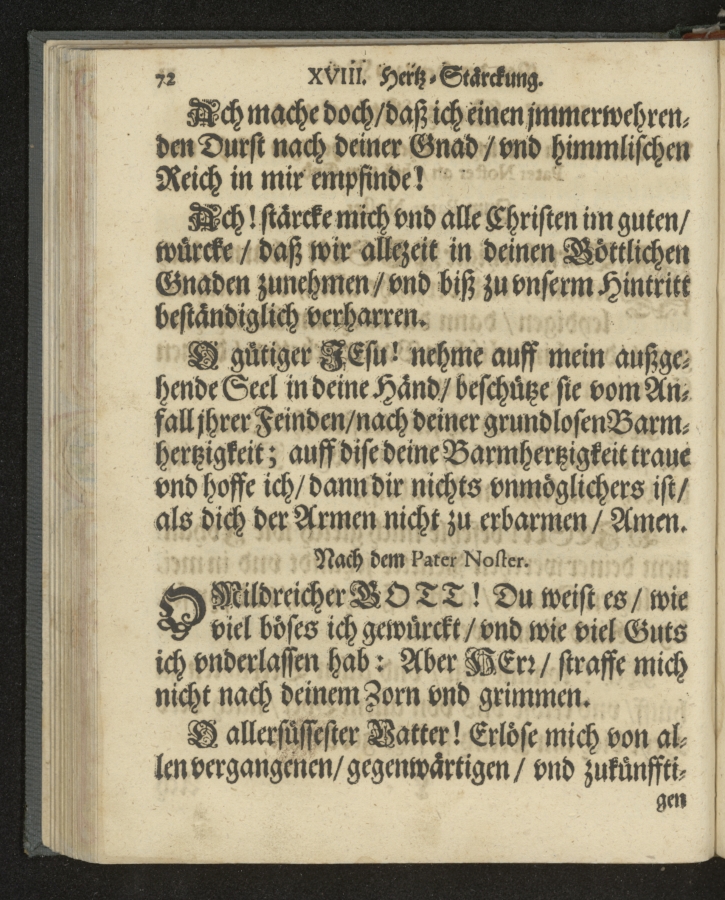 72 XVIII. Hertz-Stärckung.
Ach mache doch/daß ich einen jmmerwehren-
den Durst nach deiner Gnad / vnd himmlischen
Reich in mir empfinde!
Ach! stärcke mich vnd alle Christen im guten/
würcke / daß wir allezeit in deinen Göttlichen
Gnaden zunehmen / vnd biß zu vnserm Hintritt
beständiglich verharren.
O gütiger JEsu! nehme auff mein außge-
hende Seel in deine Händ/ beschütze sie vom An-
fall jhrer Feinden/nach deiner grundlosen Barm-
hertzigkeit; auff dise deine Barmhertzigkeit traue
vnd hoffe ich/ dann dir nichts vnmöglichers ist/
als dich der Armen nicht zu erbarmen / Amen.
Nach dem Pater Noster.
O Mildreicher GOTT! Du weist es / wie
viel böses ich gewürckt / vnd wie viel Guts
ich vnderlassen hab: Aber HErr/ straffe mich
nicht nach deinem Zorn vnd grimmen.
O allersüssester Vatter! Erlöse mich von al-
len vergangenen/ gegenwärtigen / vnd zukünffti-
gen